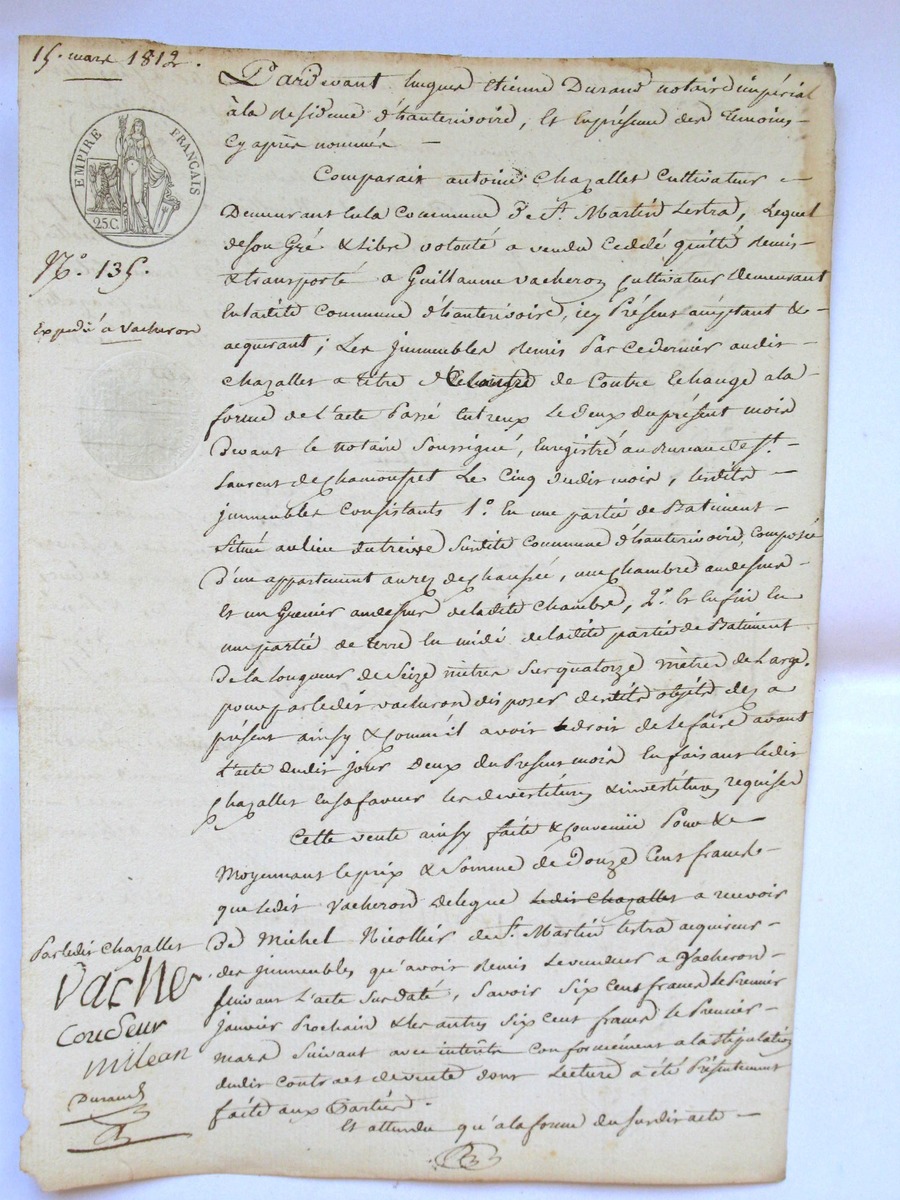 15. mars 1812.
EMPIRE FRANÇAIS
25C.
N.o 135.
Expedié a Vacheron
Pardevant hugues Etienne Durand notaire impérial
à la Residence d'hauterivoire, Et En présence des Temoins
Cy après nommés —
Comparait antoine Chazallet Cultivateur —
Demeurant En la Commune De St. Martin Lestra, Lequel
de son Gré & Libre volonté a vendu Ceddé quitté Remis
& transporté a Guillaume vacheron Cultivateur demeurant
En ladite Commune d'hauterivoire, icy Présent acceptant &
acquerant; Les jmmeubles Remis Par ce dernier audit
Chazallet a titre d'Echange de Contre Echange a la
forme de L'acte Passé Entreux Le Deux du présent mois
Devant le notaire Soussigné, Enregistré au Bureau de St.
Laurent de Chamousset Le Cinq dudit mois, Lesdits —
jmmeubles Consistants 1.o En une partie de Batiment
Situé au lieu du treive Surdite Commune d'hauterivoire, Composée
D'un appartement au rez de Chaussée, une Chambre au dessus
Et un Grenier au dessus de la dite Chambre, 2.o Et Enfin En
une partie de terre En midi de ladite partie de Batiment
De la longueur de Seize mètres Sur quatorze mètres de Large.
pour par ledit vacheron disposer desdits objets dez a
présent ainsy & Comme il avoit le droit de le faire avant
L'acte dudit jour Deux du Present mois En faisant ledit
Chazallet En sa faveur les devestitures & investitures requises
Cette vente ainsy faite & Convenüe Pour &
Moyennant le prix & Somme de Douze Cent francs
que ledit Vacheron delegue ledit Chazallet a recevoir
De Michel Nicollier de St. Martin Lestra acquereur
des jmmeubles qu'avoit Remis Le vendeur a Vacheron
Suivant L'acte Surdaté, Savoir Six Cent francs Le Premier
janvier Prochain & les autres Six Cent francs le Premier
mars Suivant avec intérêts Conformément a la Stipulation
dudit Contract de vente dont Lecture a été Présentement
faite aux Parties.
Et attendu qu'a la forme du Susdit acte —
Par ledit Chazallet
Vacher
Coudeur
milean
Durand